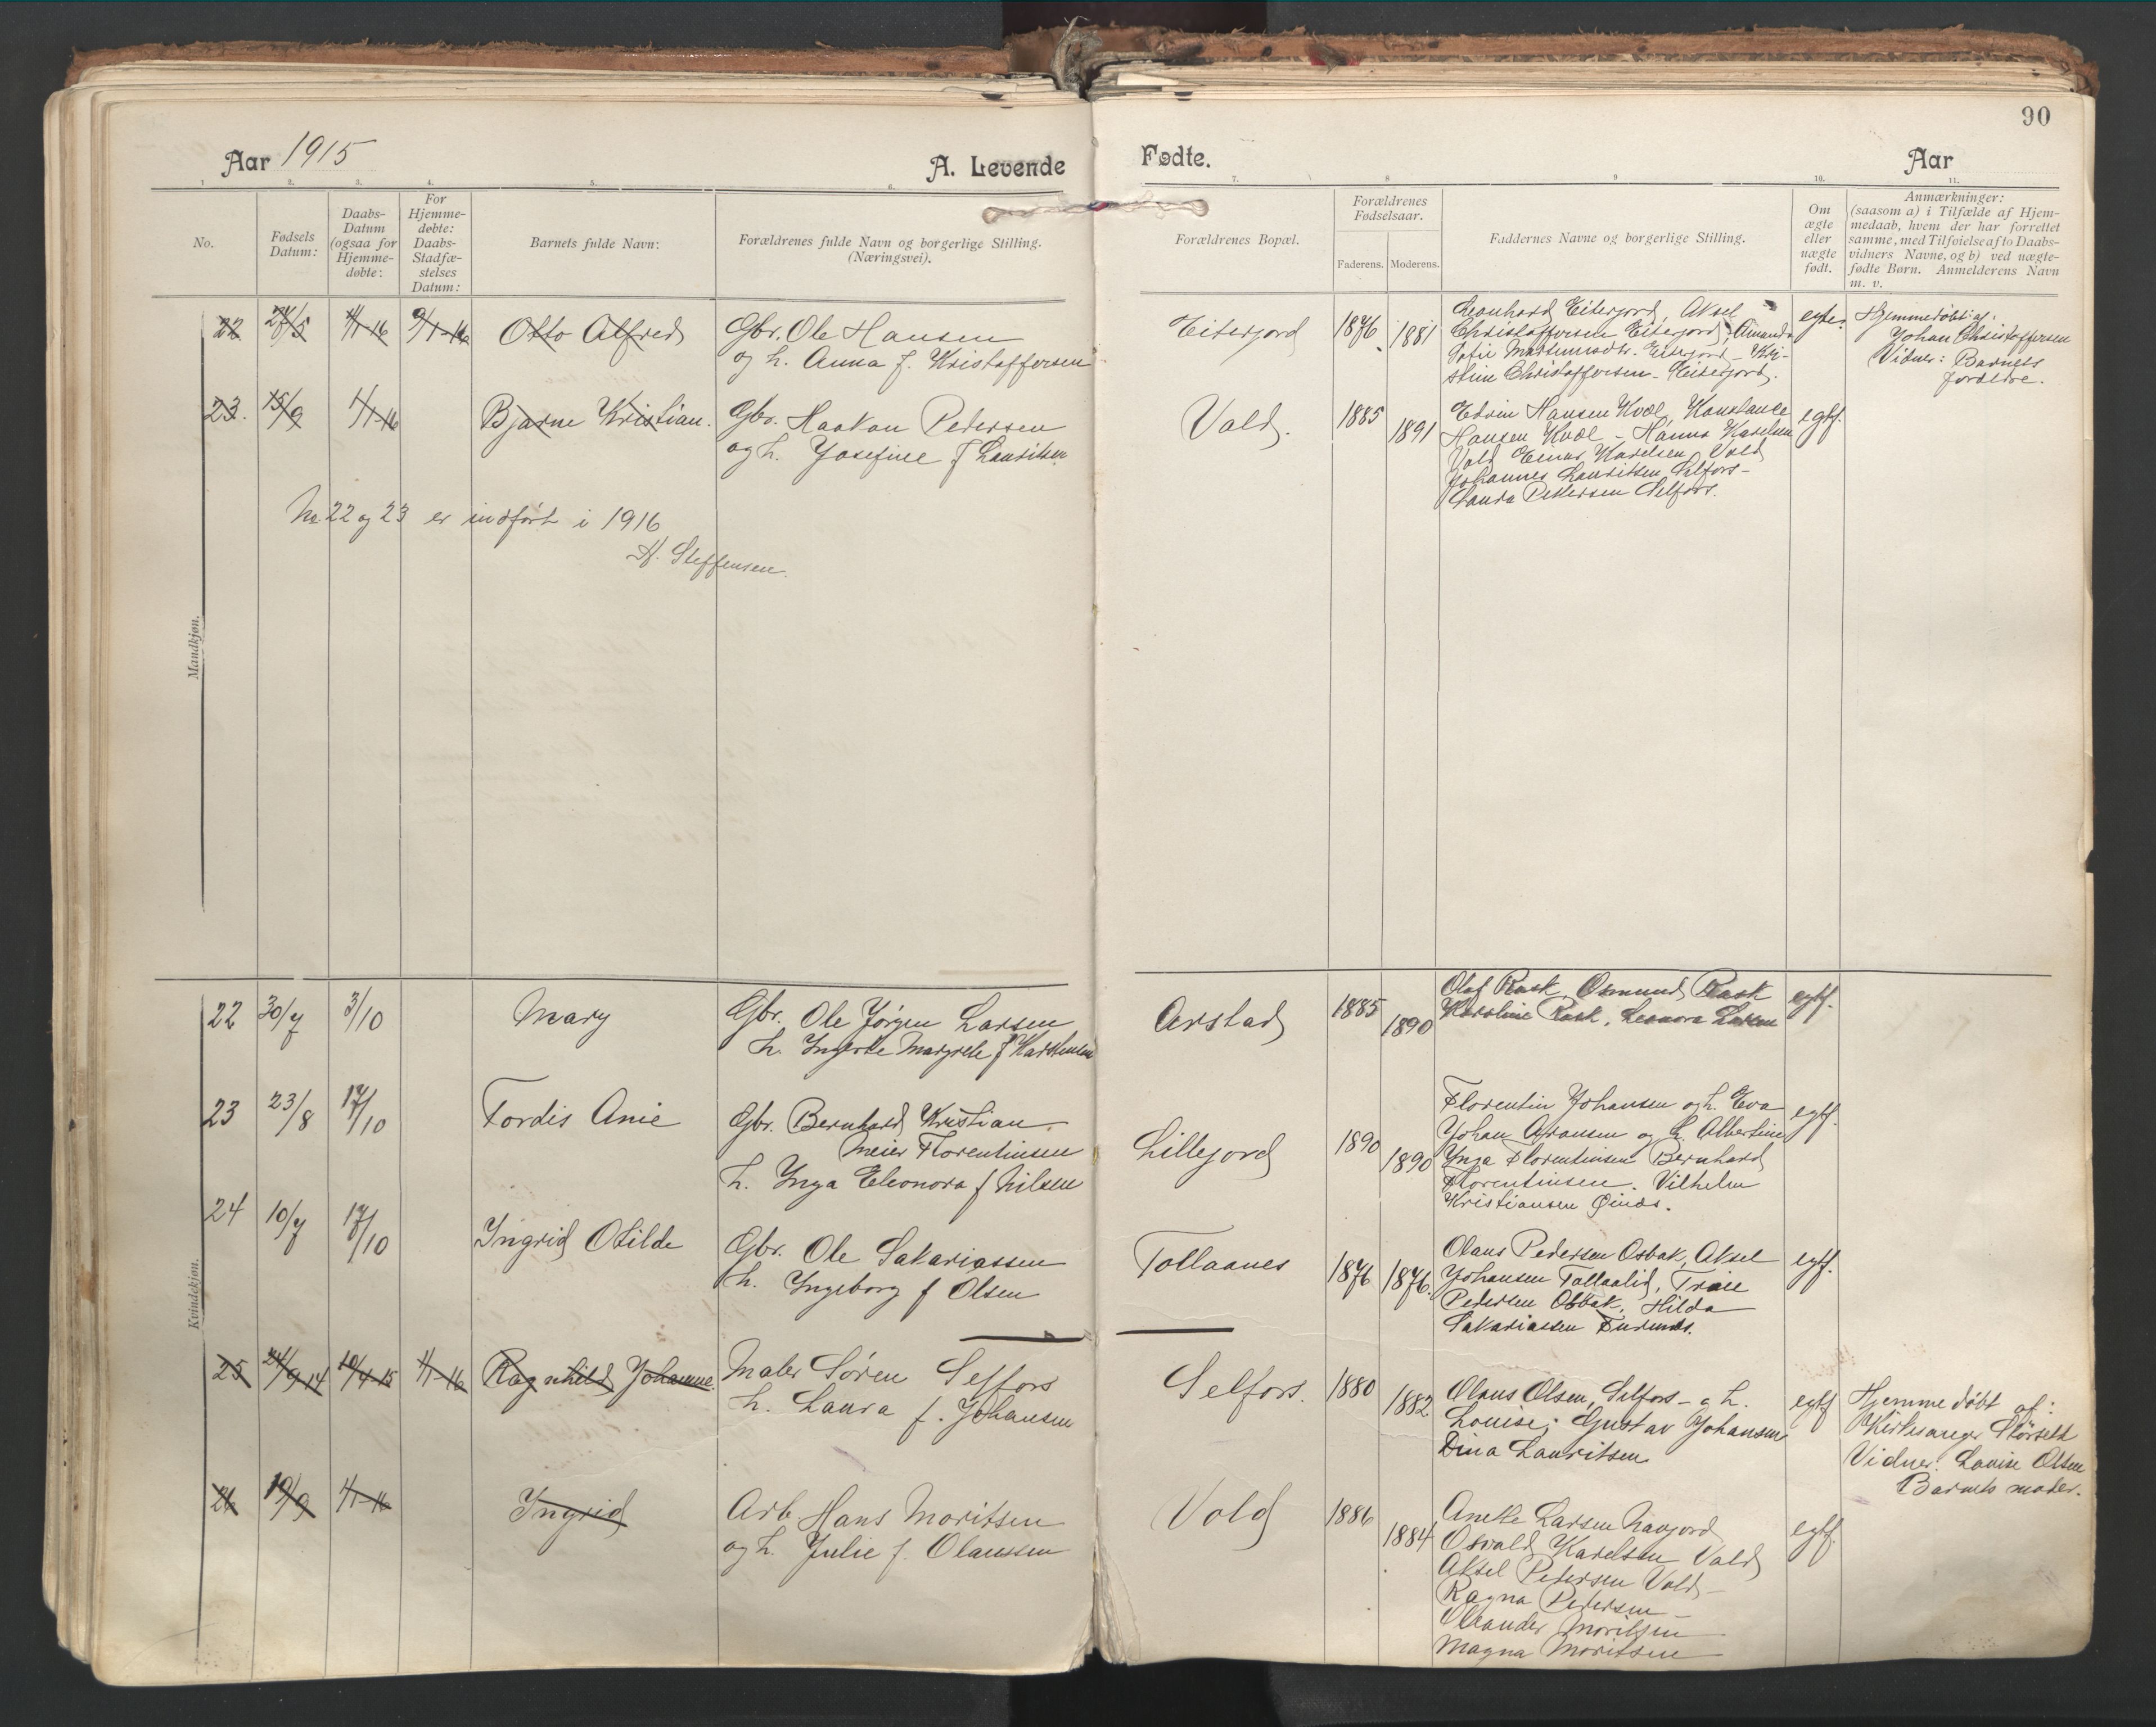 90
Aar 1915
A. Levende
Fødte.
Aar
1. 2. 3. 4. 5. 6. 7. 8 9 10. 11.
No.
Fødsels Datum:
Daabs-
Datum
(ogsaa for
Hjemme-
døbte:
For
Hjemme-
døbte:
Daabs-
Stadfæ-
stelses
Datum:
Barnets fulde Navn:
Forældrenes fulde Navn og borgerlige Stilling.
(Næringsvei).
Forældrenes Bopæl.
Forældrenes
Fødselsaar.
Faderens. Moderens.
Faddernes Navne og borgerlige Stilling.
Om
ægte
eller
uægte
født.
Anmærkninger:
(saasom a) i Tilfælde af Hjem-
medaab, hvem der har forrettet
samme, med Tilføielse af to Daabs-
vidners Navne, og b) ved uægte-
fødte Børn. Anmelderens Navn
m. v.
Mandkjøn.
22 27/5 4/1-16 9/1-16 Otto Alfred
Gbr. Ole Hansen
og h. Anna f. Kristoffersen
Eiterjord 1876 1881
Leonhard Eiterjord, Aksel
Christoffersen Eiterjord, Amanda
Sofie Martinusdtr. Eiterjord - Kri-
stine Christoffersen - Eiterjord.
egte.
Hjemmedøbt af:
Johan Christoffersen
Vidner: Barnets
forældre.
23. 15/9 1/1-16 Bjarne Kristian.
Gbr. Haakon Pedersen
og h. Josefine f Lauritsen
Vold. 1885 1891
Edvin Hansen Kvæl, Konstance
Hansen Kvæl - Hanna Karelsen
Vold Karelsen Vold
Johannes Lauritsen Selfors -
Laura Pedersen Selfors.
egtf.
Nr. 22 og 23 er indført i 1916
A. Steffensen.
Kvindekjøn.
22 30/7 3/10 Mary
Gbr. Ole Jørgen Larsen
h. Margrete f Karstensen
Arstad 1885 1890
Olaf Rask, Osmund Rask
Karoline Rask, Leonora Larsen
egtf.
23 23/8 17/10 Tordis Anie
Gbr. Bernhard Kristian
Meier Florentinsen
h. Inga Eleonora f Nilsen
Lillejord 1890 1890
Florentin Johansen og h. Eva
Johan og h. Albertine
Inga Florentinsen Bernhard
Florentinsen. Vilhelm
Kristiansen
egtf.
24 10/7 17/10 Ingrid Otilde
Gbr. Ole Sakariassen
h. Ingeborg f Olsen
Tollaanes 1876 1876.
Olaus Pedersen Osbak, Aksel
Johansen Tollaalid, Trine
Pedersen Osbak, Hilda
Sakariassen
egtf.
25 24/9-14 10/4-15 4/1-16 Ragnhild Johanne.
Maler Søren Selfors
h. Laura f. Johansen
Selfors. 1880 1882
Olaus Olsen, Selfors - og h.
Louise; Gustav Johansen
Dina Lauritsen
egtf
Hjemmedøbt af:
Kirkesanger Størseth
Vidner: Lovise Olsen
Barnets moder.
26 19/9 4/1-16 Ingrid
Arb Hans Moritsen
og h. Julie f. Olaussen
Vold 1886 1884
Anette Larsen Navjord
Osvald Karelsen Vold
Aksel Petersen Vold -
Ragna Petersen -
Oleander Moritsen
Magna Moritsen
egtf.